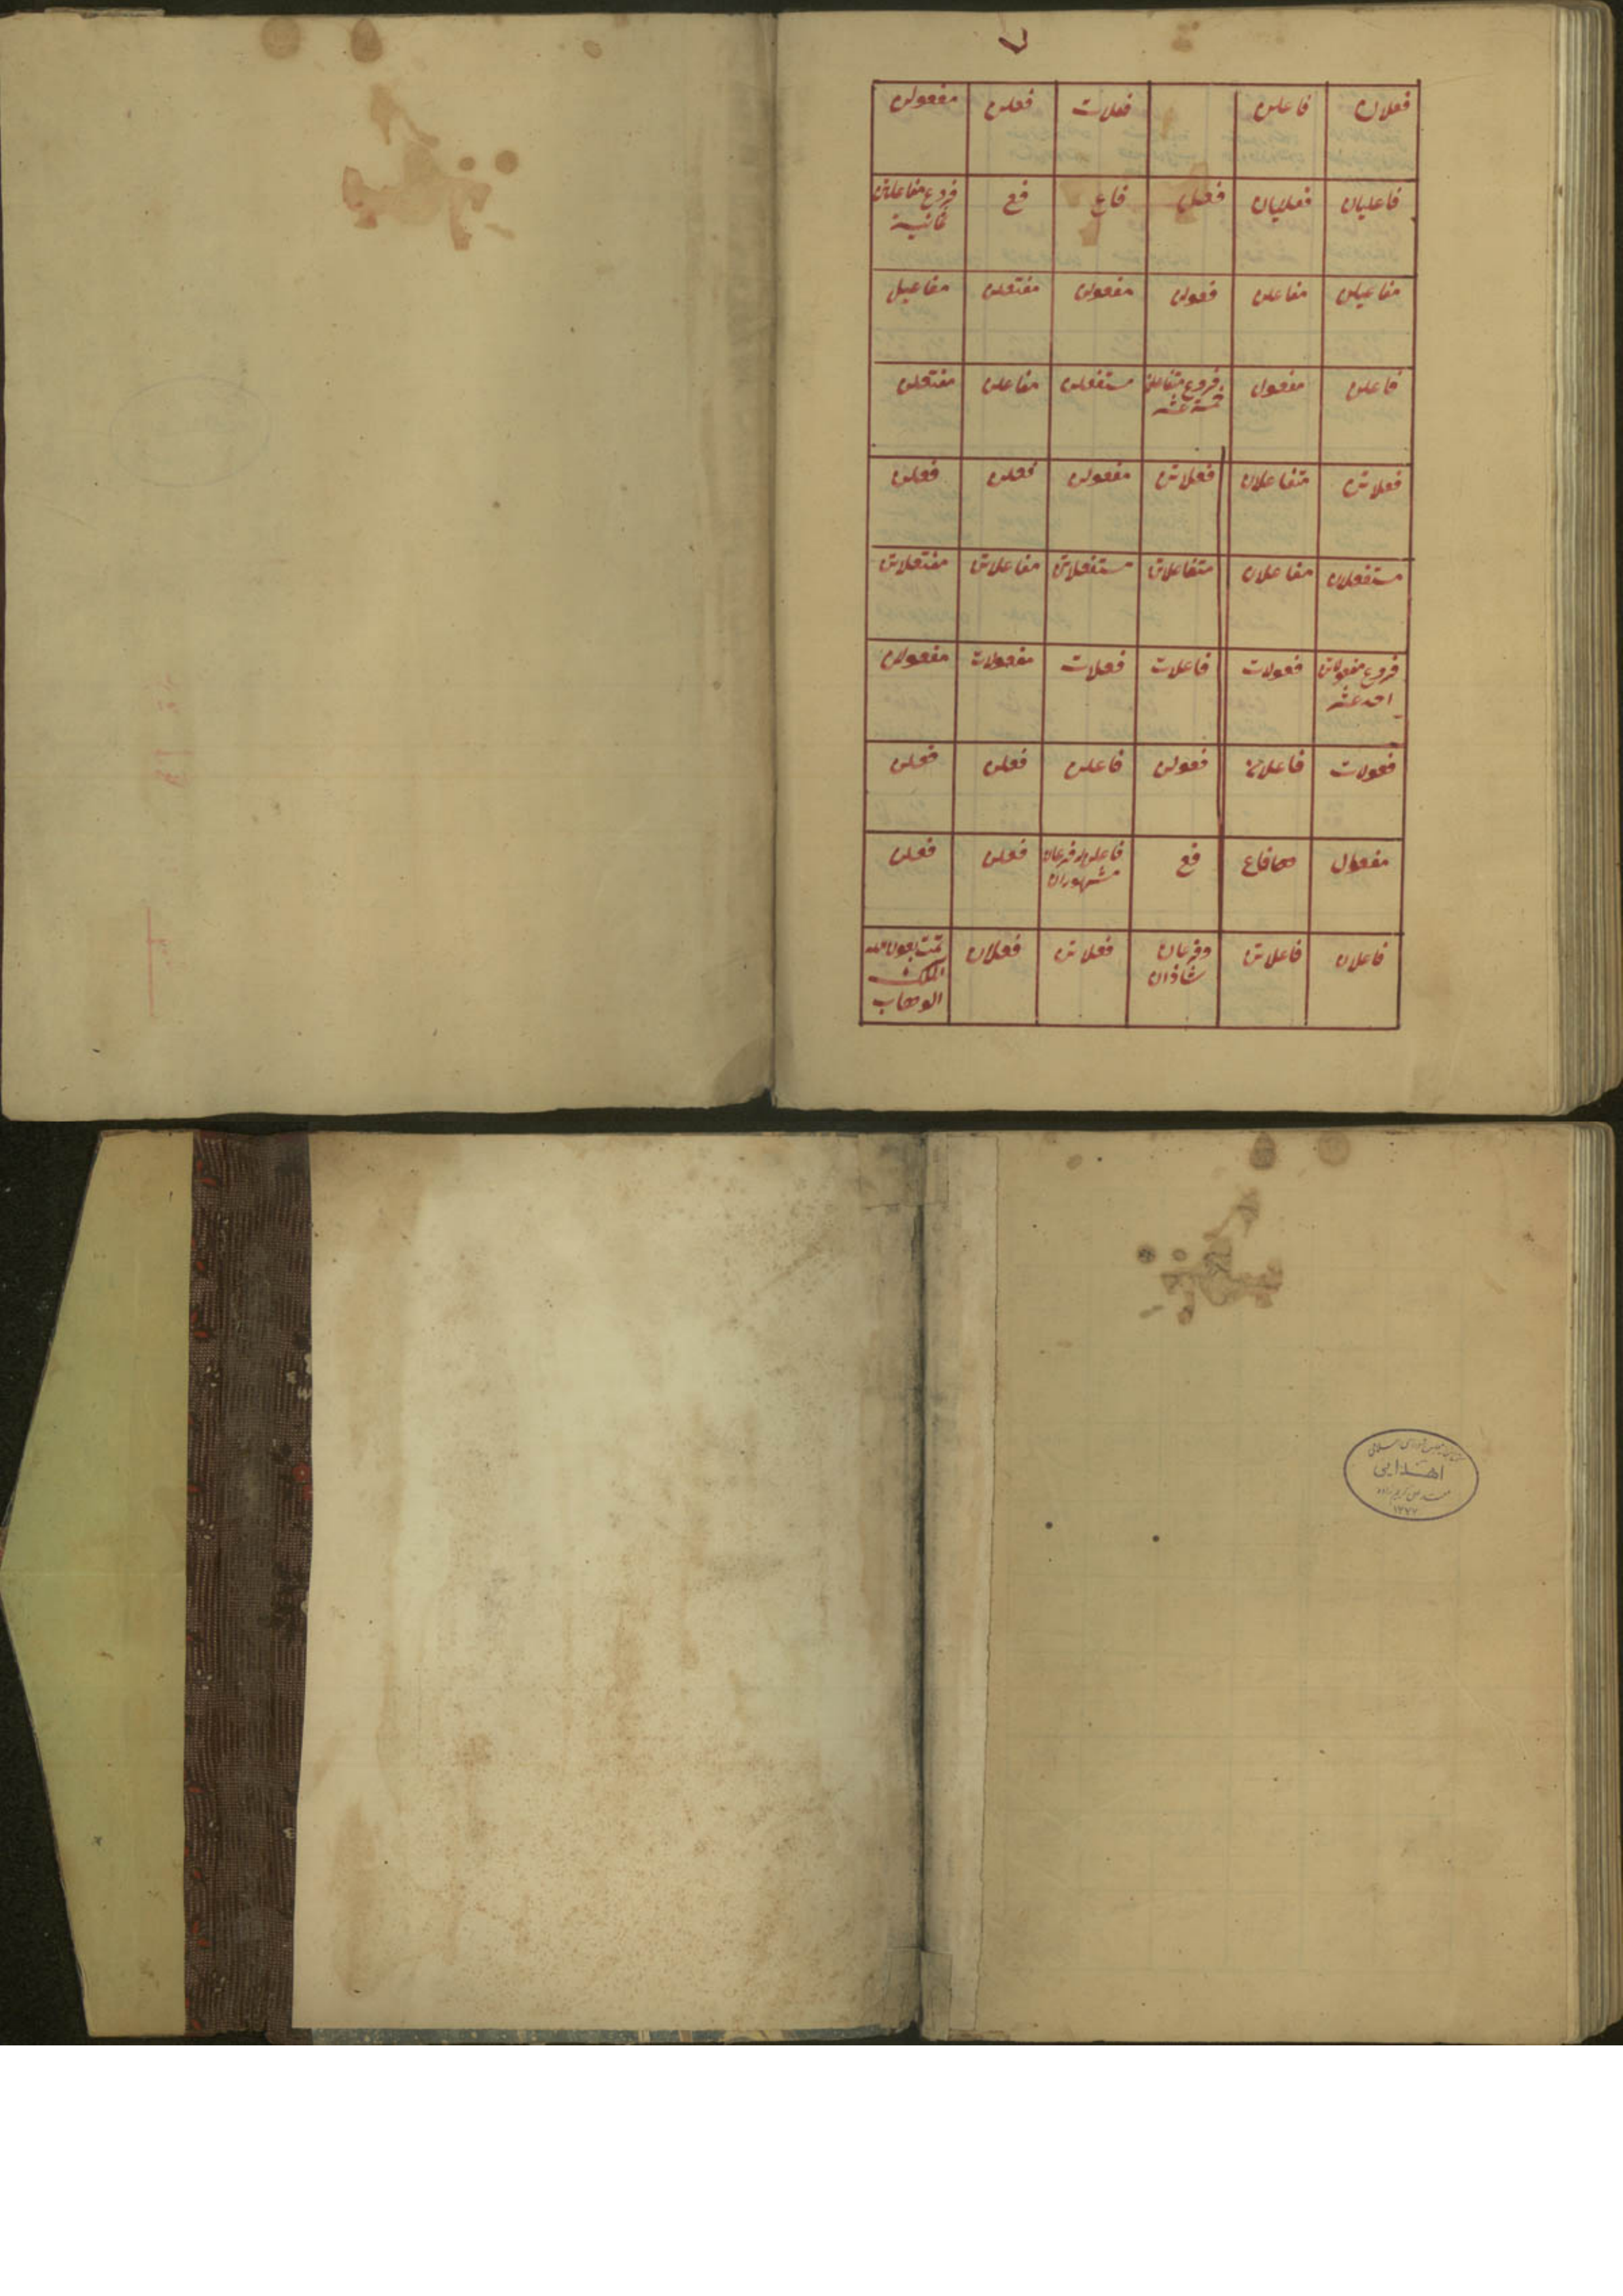 فعلان فاعلن فعلات فعلن مفعولن
فاعليان فعليان فعل فاع فع فروع مفاعلتن
ثمانية
مفاعيلن مفاعلن فعولن مفعولن مفتعلن مفاعيل
فاعلن مفعول فروع متفاعلن مستفعلن مفاعلن مفتعلن
خمسة عشر
فعلاتن متفاعلان فعلاتن مفعولن فعلن فعلن
مستفعلان مفاعلان متفاعلاتن مستفعلاتن مفاعلاتن مفتعلاتن
فروع مفعولات فعولات فاعلات فعلات مفعولات مفعولن
احد عشر
فعولات فاعلان فعولن فاعلن فعلن فعلن
مفعول فاع فع فاعلن له فرعان فعلن فعلن
مشهوران
فاعلان فاعلاتن وفرعان فعلاتن فعلان تمت بعون الله
شاذان الملك
الوهاب
كتابخانه مجلس شوراى اسلامى
اهدايى